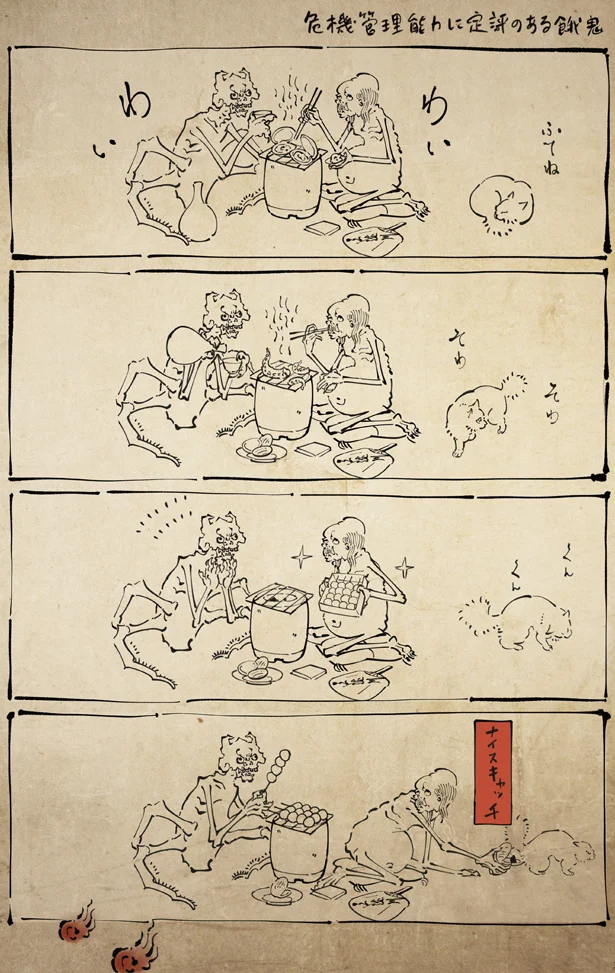 危機管理能力に定評のある餓鬼
わい
わい
ふてね
そわ
そわ
くん
くん
ナイスキャッチ